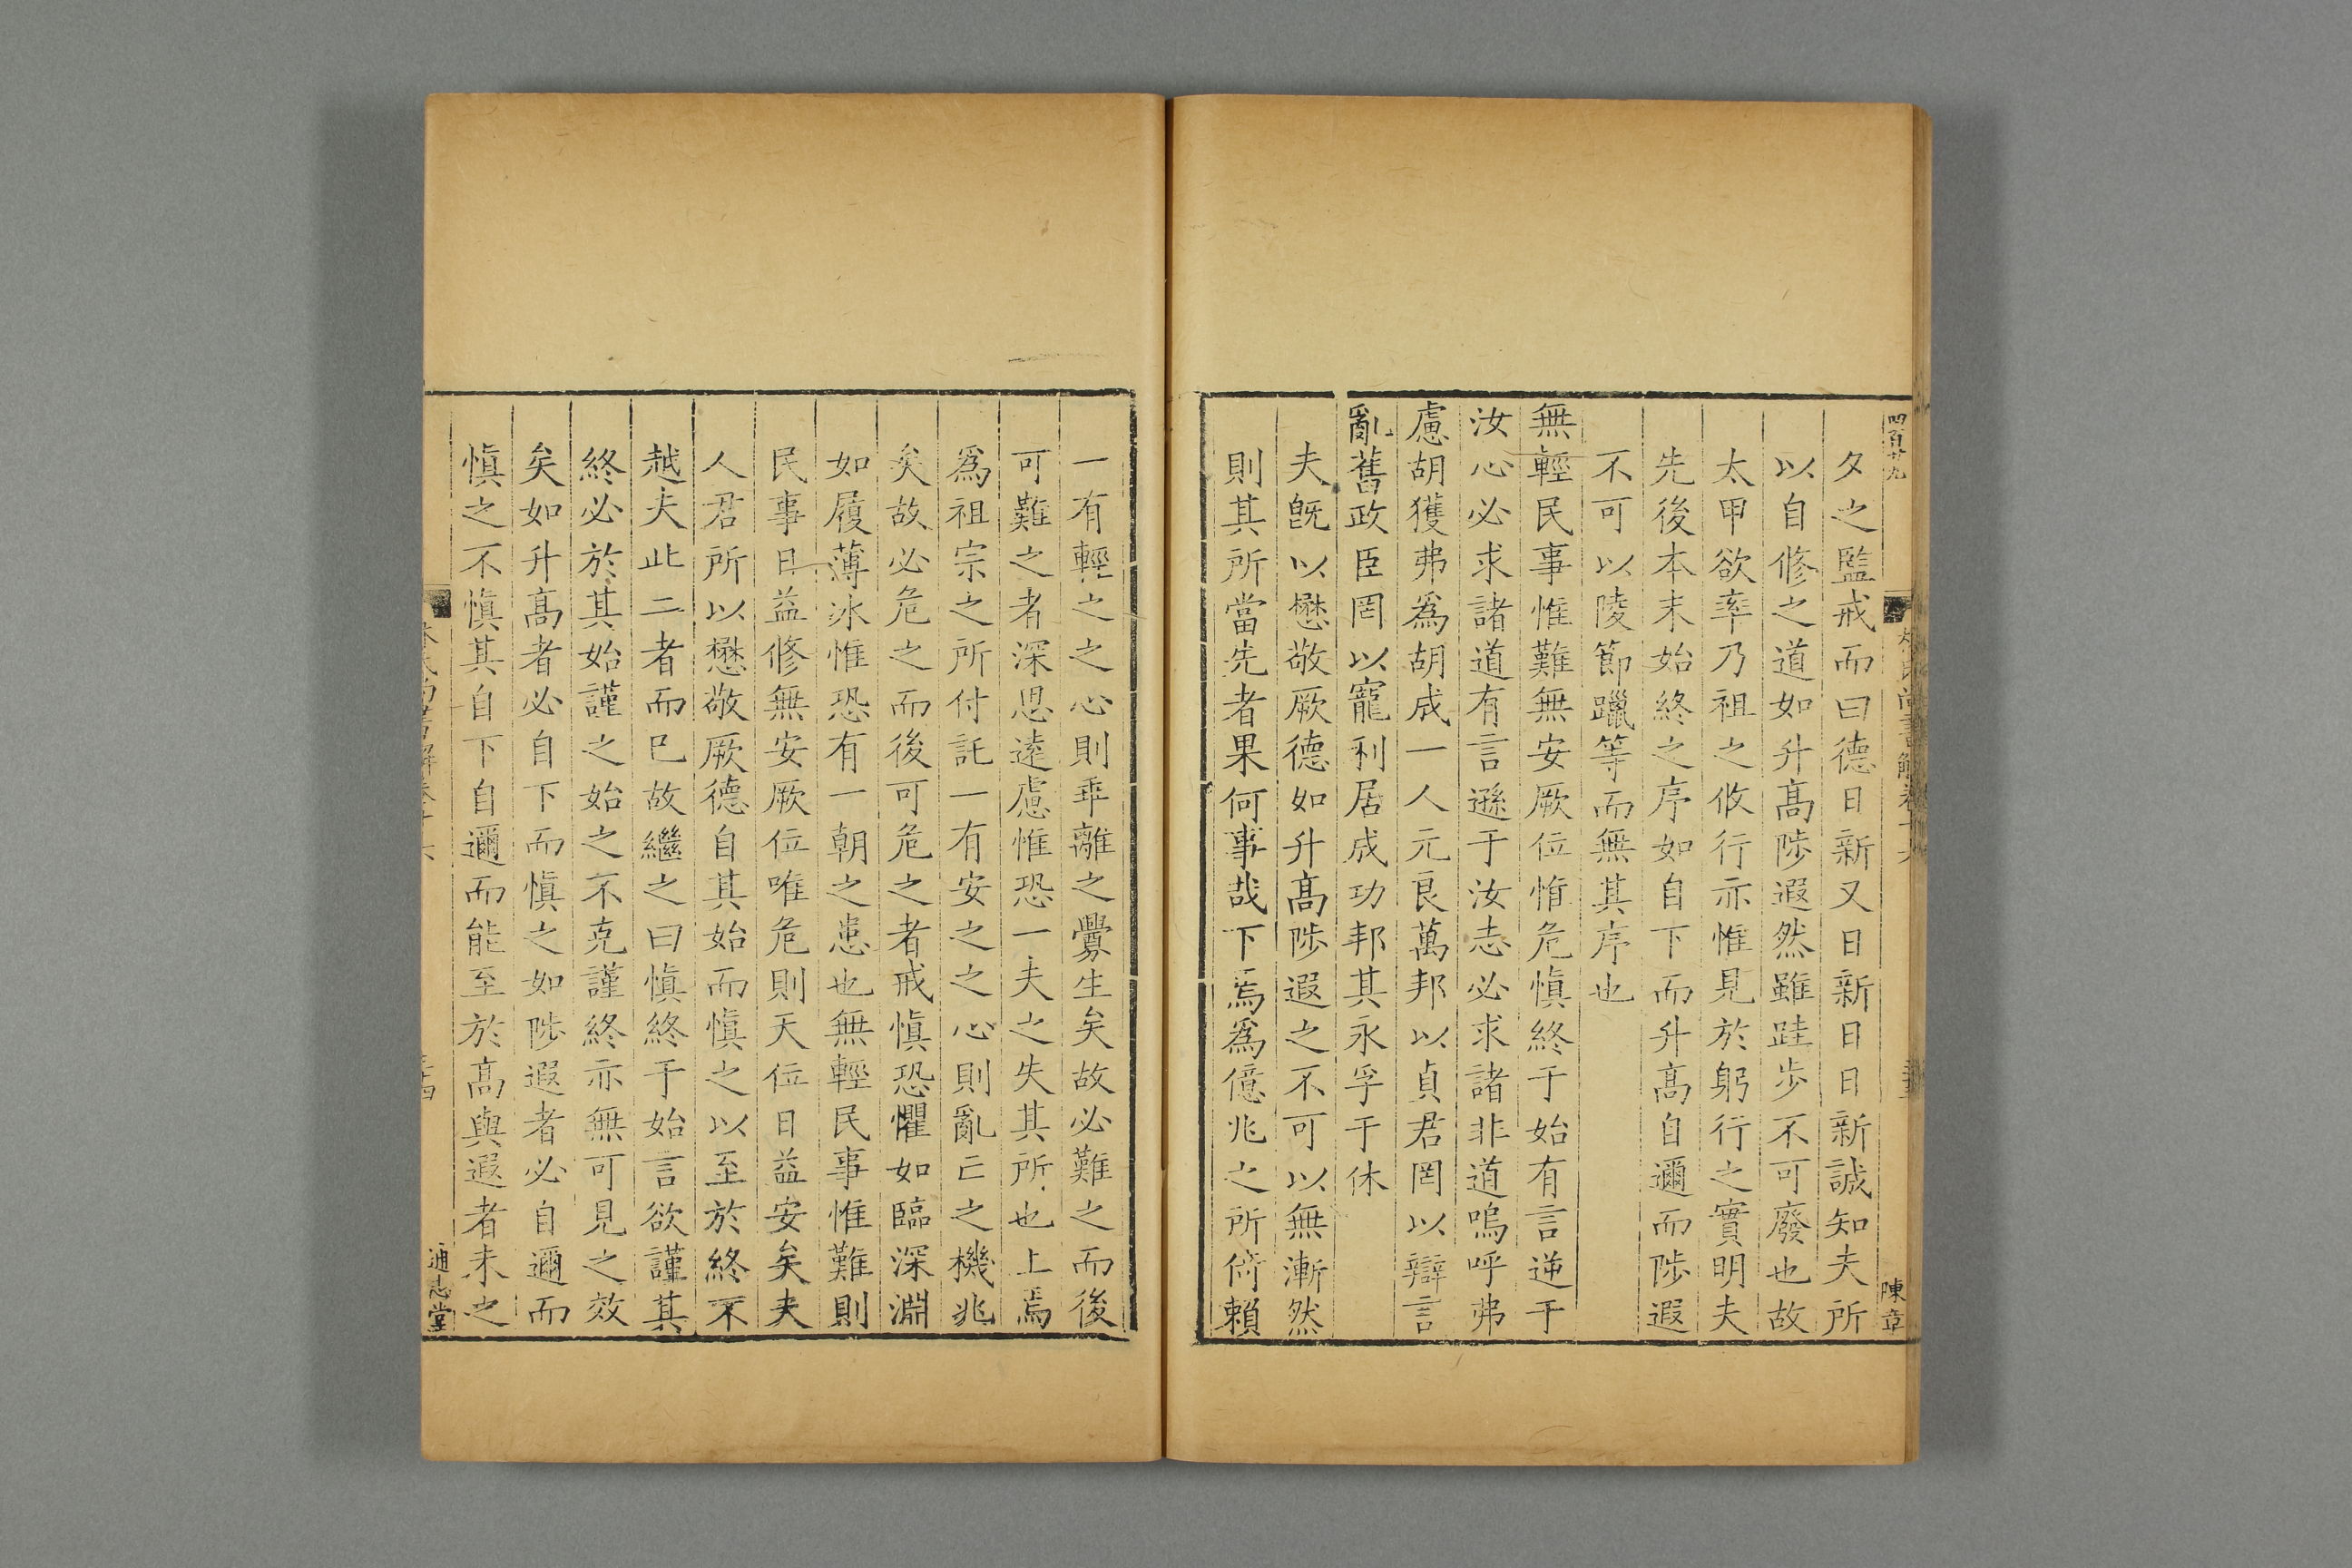 四百廿九
陳章
夕之監戒而曰德日新又日新日日新誠知夫所
以自修之道如升高陟遐然雖跬步不可廢也故
太甲欲率乃祖之攸行亦惟見於躬行之實明夫
先後本末始終之序如自下而升高自邇而陟遐
不可以陵節躐等而無其序也
無輕民事惟難無安厥位惟危愼終于始有言逆于
汝心必求諸道有言遜于汝志必求諸非道嗚呼弗
慮胡獲弗爲胡成一人元良萬邦以貞君罔以辯言
亂舊政臣罔以寵利居成功邦其永孚于休
夫旣以懋敬厥德如升高陟遐之不可以無漸然
則其所當先者果何事哉下焉爲億兆之所倚賴
一有輕之之心則乖離之釁生矣故必難之而後
可難之者深思遠慮惟恐一夫之失其所也上焉
爲祖宗之所付託一有安之之心則亂亡之機兆
矣故必危之而後可危之者戒愼恐懼如臨深淵
如履薄冰惟恐有一朝之患也無輕民事惟難則
民事日益修無安厥位唯危則天位日益安矣夫
人君所以懋敬厥德自其始而愼之以至於終不
越夫此二者而已故繼之曰愼終于始言欲謹其
終必於其始謹之始之不克謹終亦無可見之效
矣如升高者必自下而愼之如陟遐者必自邇而
愼之不愼其自下自邇而能至於高與遐者未之
通志堂